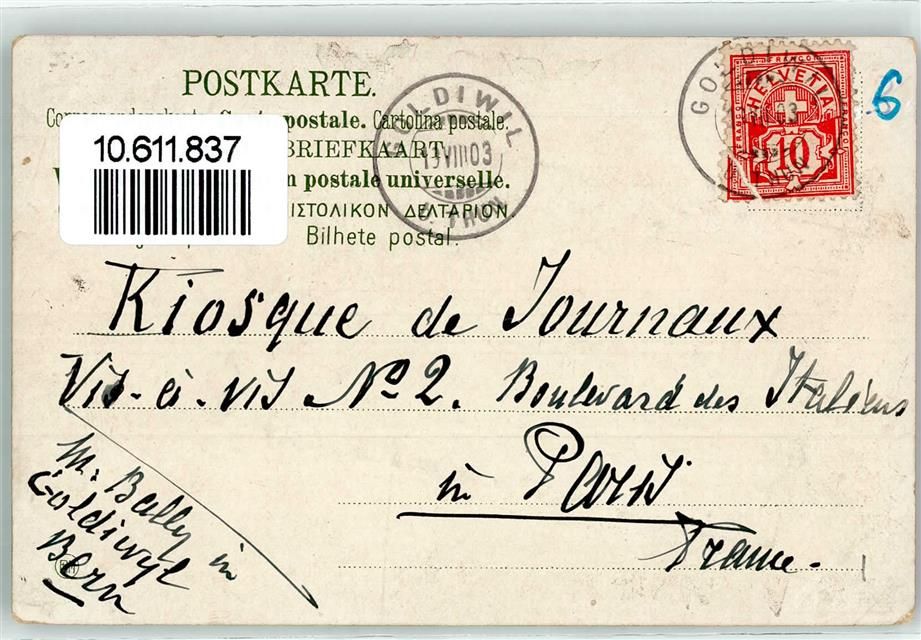 POSTKARTE.
postale. Cartolina postale.
BRIEFKAART
postale universelle.
ΙΣΤΟΛΙΚΟΝ ΔΕΛΤΑΡΙΟΝ.
Bilhete postal.
10.611.837
GOLDIWIL
VIII 03
THUN
GOLDI
HELVETIA
FRANCO
10
6
Kiosque de Journaux
Vis-à-vis No 2. Boulevard des Italiens
in Paris
France.
M. Bally in
Goldiwyl
Bern